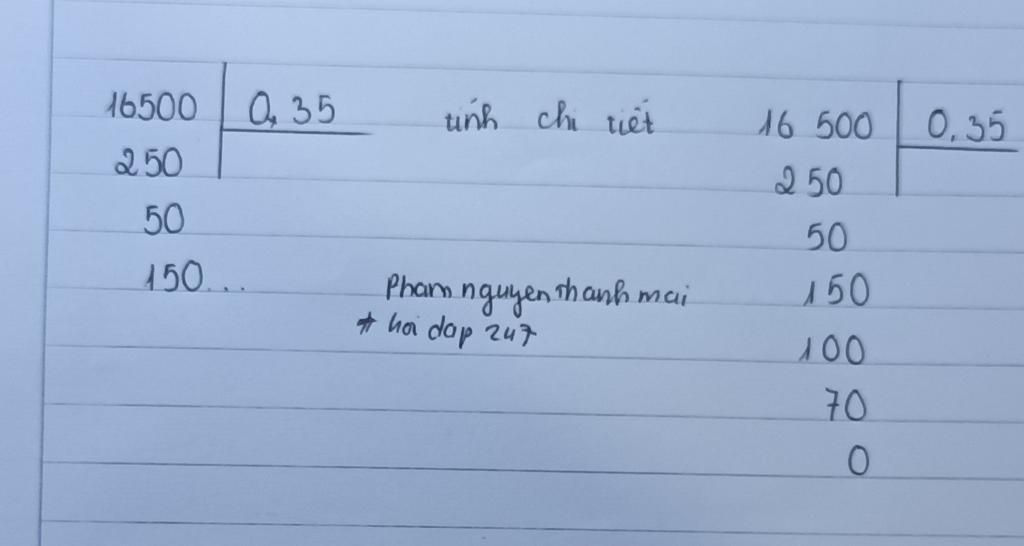 16500 0,35 tính chi tiết 16 500 0,35
250 250
50 50
150... 150
Phamnguyenthanhmai
* hoi dap 247
100
70
0